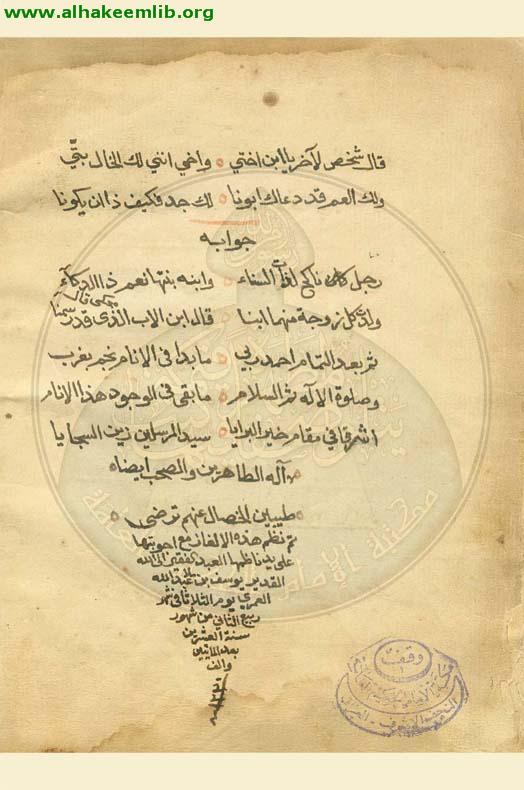 www.alhakeemlib.org
قال شخص لآخر يا ابن اختي ه واخي انني لك الخال بتّي
ولك العم قد دعاك ابونا ه لك جد فكيف ذا ان يكونا
جوابه
رجل كان ناكح السناء ه وابنه بنتها نعم ذا الدكآء
ولدت كل زوجة منهما ابنا ه قال ابن الاب الذي قد
ثم بعد التمام احمد ربي ه ما بدا في الانام نجم بغرب
وصلوة الاله ثم السلام ه ما بقى في الوجود هذا الانام
اشرقا في مقام خير البرايا ه سيد المرسلين زين السجايا
آله الطاهرين والصحب ايضا ه
ه طيبين الخصال عنهم ترضى ه
تم نظم هذه الالغاز مع اجوبتها
على يد ناظمها العبد الفقير الى الله
القدير يوسف بن عبد الله
العمري يوم الثلاثا في شهر
ربيع الثاني من شهور
سنة العشرين
بعد المايتين
والف
وقف